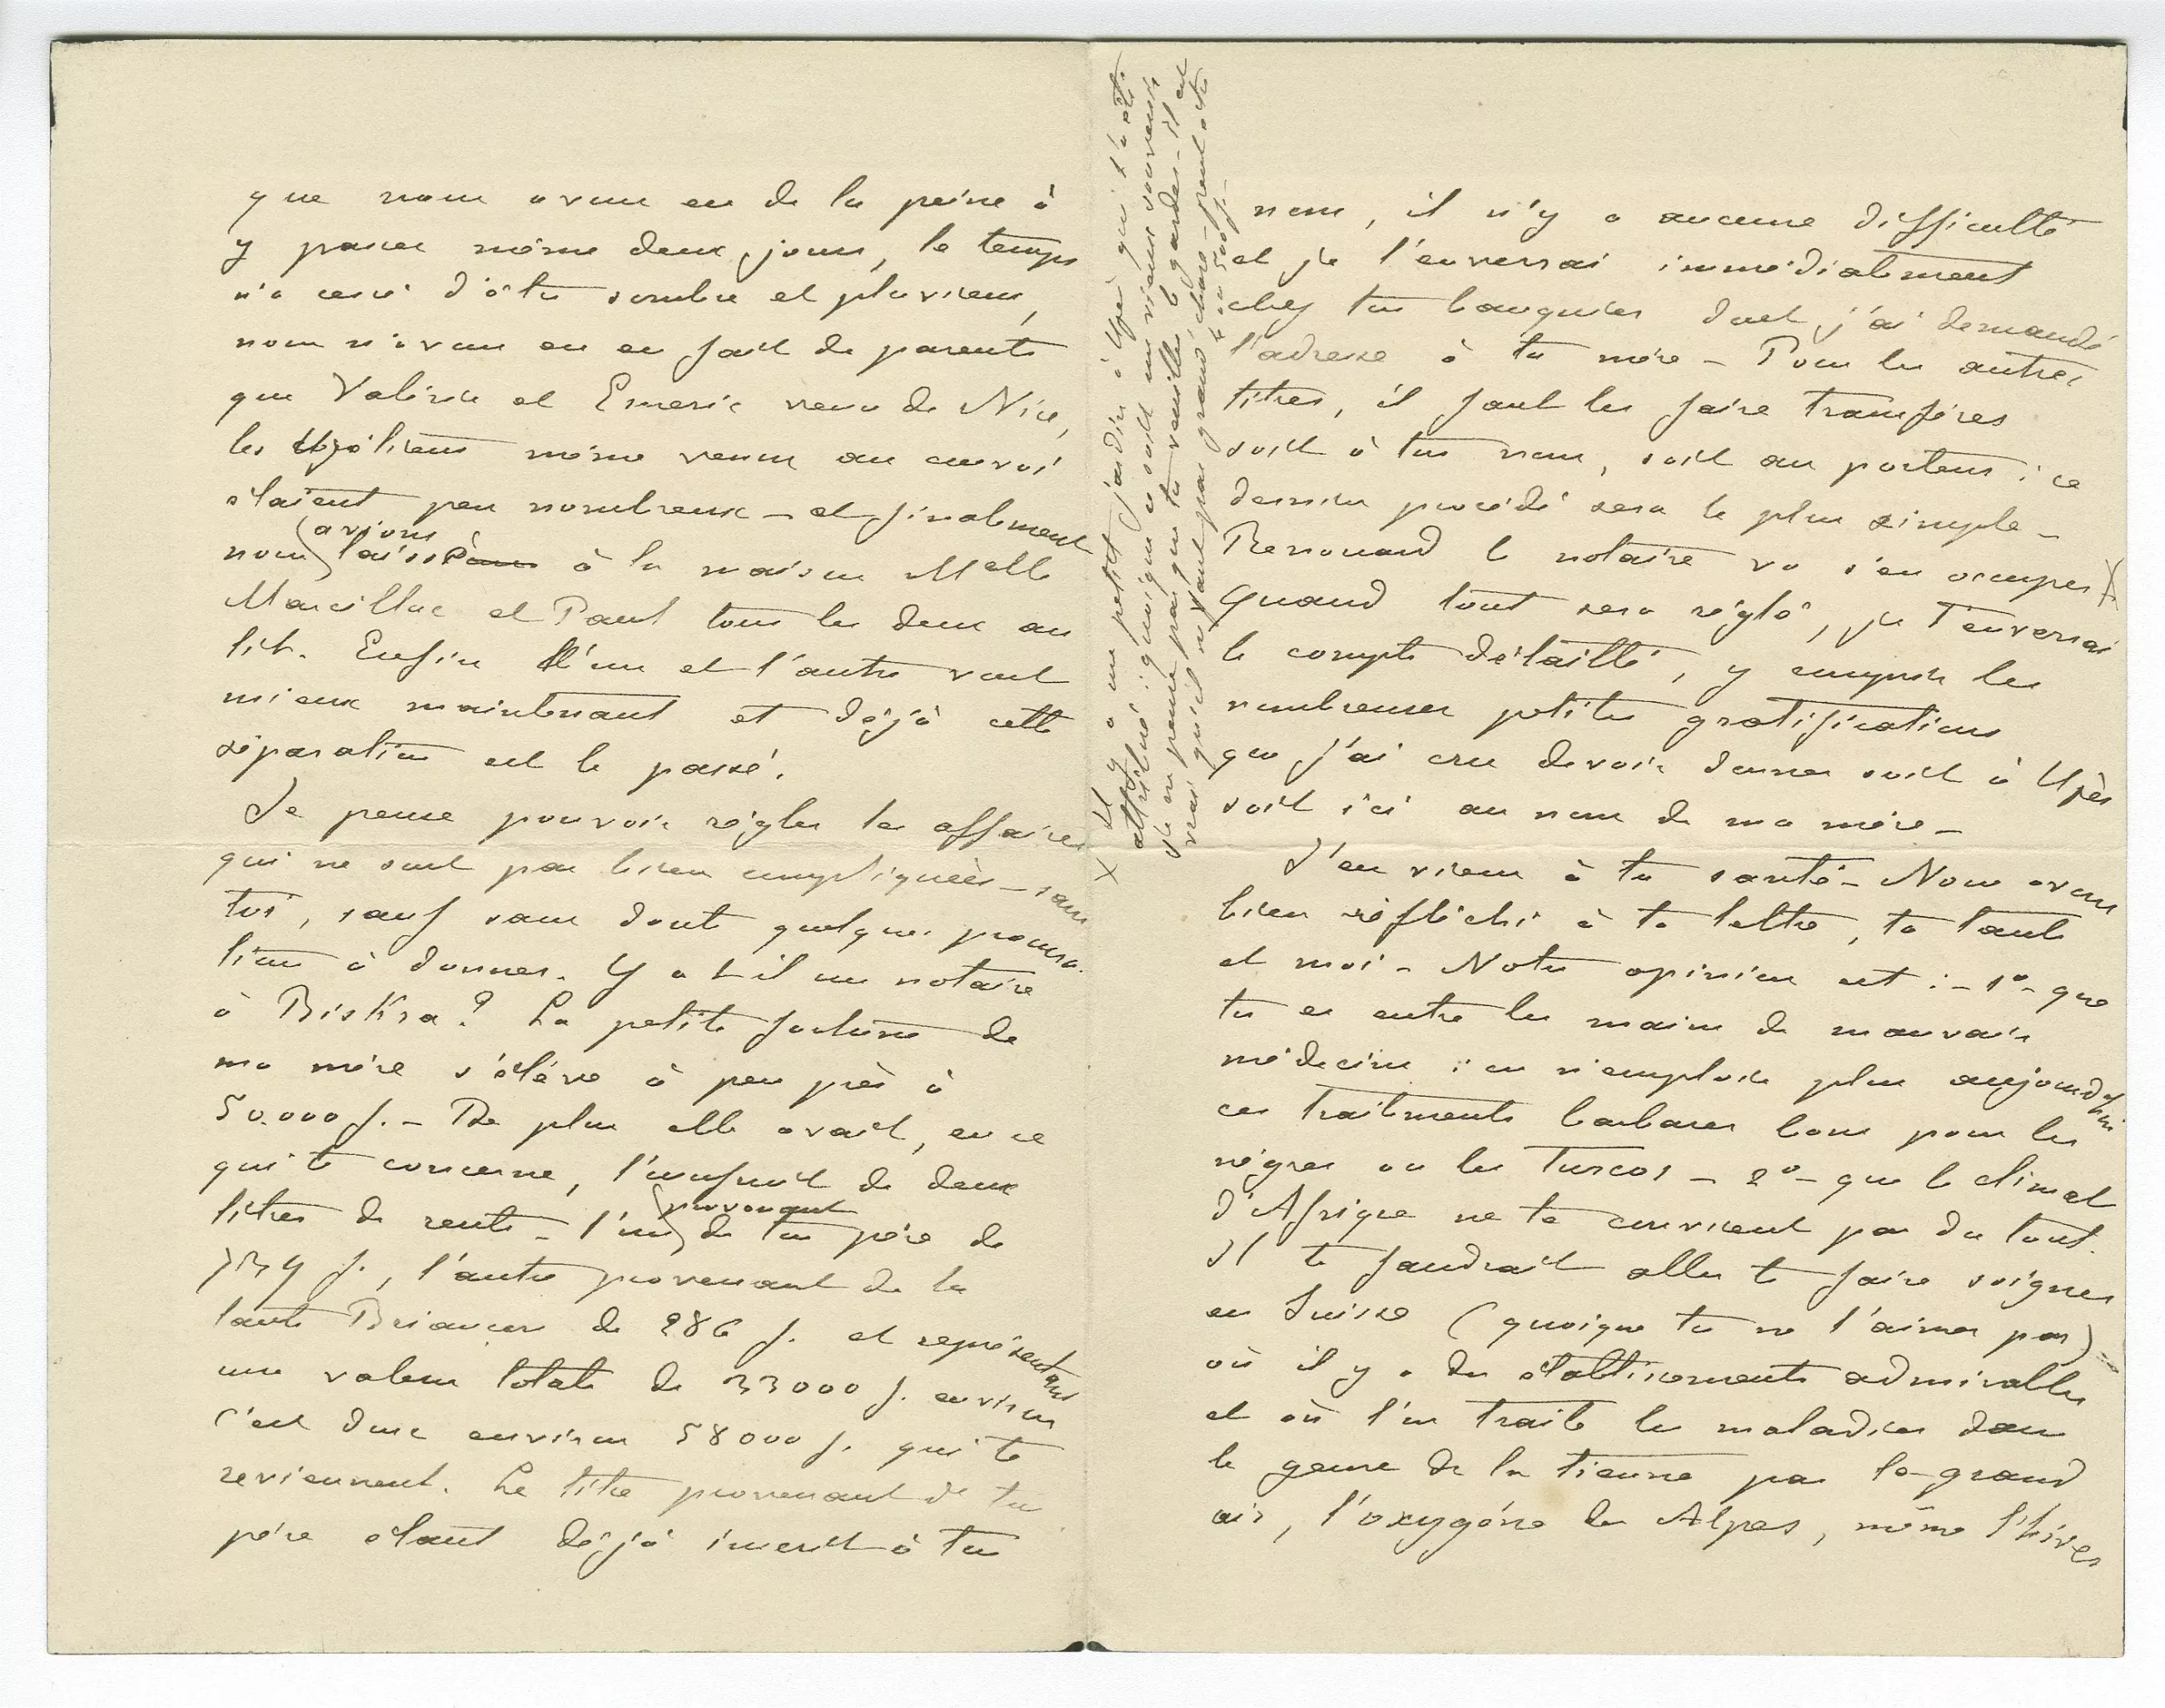 que nous avons eu de la peine à
y passer même deux jours, le temps
n'a cessé d'être sombre et pluvieux,
nous n'avons eu en fait de parents
que Valérie et Emeric venu de Nice,
les Uzétiens même venus au convoi
étaient peu nombreux – et finalement
nous avions laissé à la maison Melle
Marcillac et Paul tous les deux au
lit. Enfin l'un et l'autre vont
mieux maintenant et déjà cette
séparation est le passé.
Je pense pouvoir régler les affaires
qui ne sont pas bien compliquées – sans
toi, sauf sans doute quelques procura-
tions à donner. Y a t-il un notaire
à Biskra? La petite fortune de
ma mère s'élève à peu près à
50.000 f. – De plus elle avait, en ce
qui te concerne, l'usufruit de deux
titres de rente – l'un provenant de ton père de
f., l'autre provenant de la
tante Briançon de 286 f. et représentant
une valeur totale de 33000 f. environ
C'est donc environ 58000 f. qui te
reviennent. Le titre provenant de ton
père étant déjà inscrit à ton
nom, il n'y a aucune difficulté
et je l'enverrai immédiatement
chez ton banquier dont j'ai demandé
l'adresse à ta mère – Pour les autres
titres, il faut les faire transférer
soit à ton nom, soit au porteur : ce
dernier procédé sera le plus simple –
Renouard le notaire va s'en occuper X
Quand tout sera réglé, je t'enverrai
le compte détaillé, y compris les
nombreuses petites gratifications
que j'ai cru devoir donner soit à Uzès
soit ici au nom de ma mère –
J'en viens à ta santé – Nous avons
bien réfléchi à ta lettre, ta tante
et moi – Notre opinion est : – 1º – que
tu es entre les mains de mauvais
médecins : on n'emploie plus aujourd'hui
ces traitements barbares bons pour les
nègres ou les Turcos – 2º – que le climat
d'Afrique ne te convient pas du tout.
Il te faudrait aller te faire soigner
en Suisse (quoique tu ne l'aimes pas)
où il y a des établissements admirables
et où l'on traite les maladies dans
le genre de la tienne par le grand
air, l'oxygène des Alpes, même l'hiver
X Il y a un petit jardin à Uzès qui t'a été
attribué : quoique ce soit un vieux souvenir
je ne pense pas que tu veuilles le garder – il est
vrai qu'il ne vaut pas grand chose – peut-être
4 ou 500 f. –